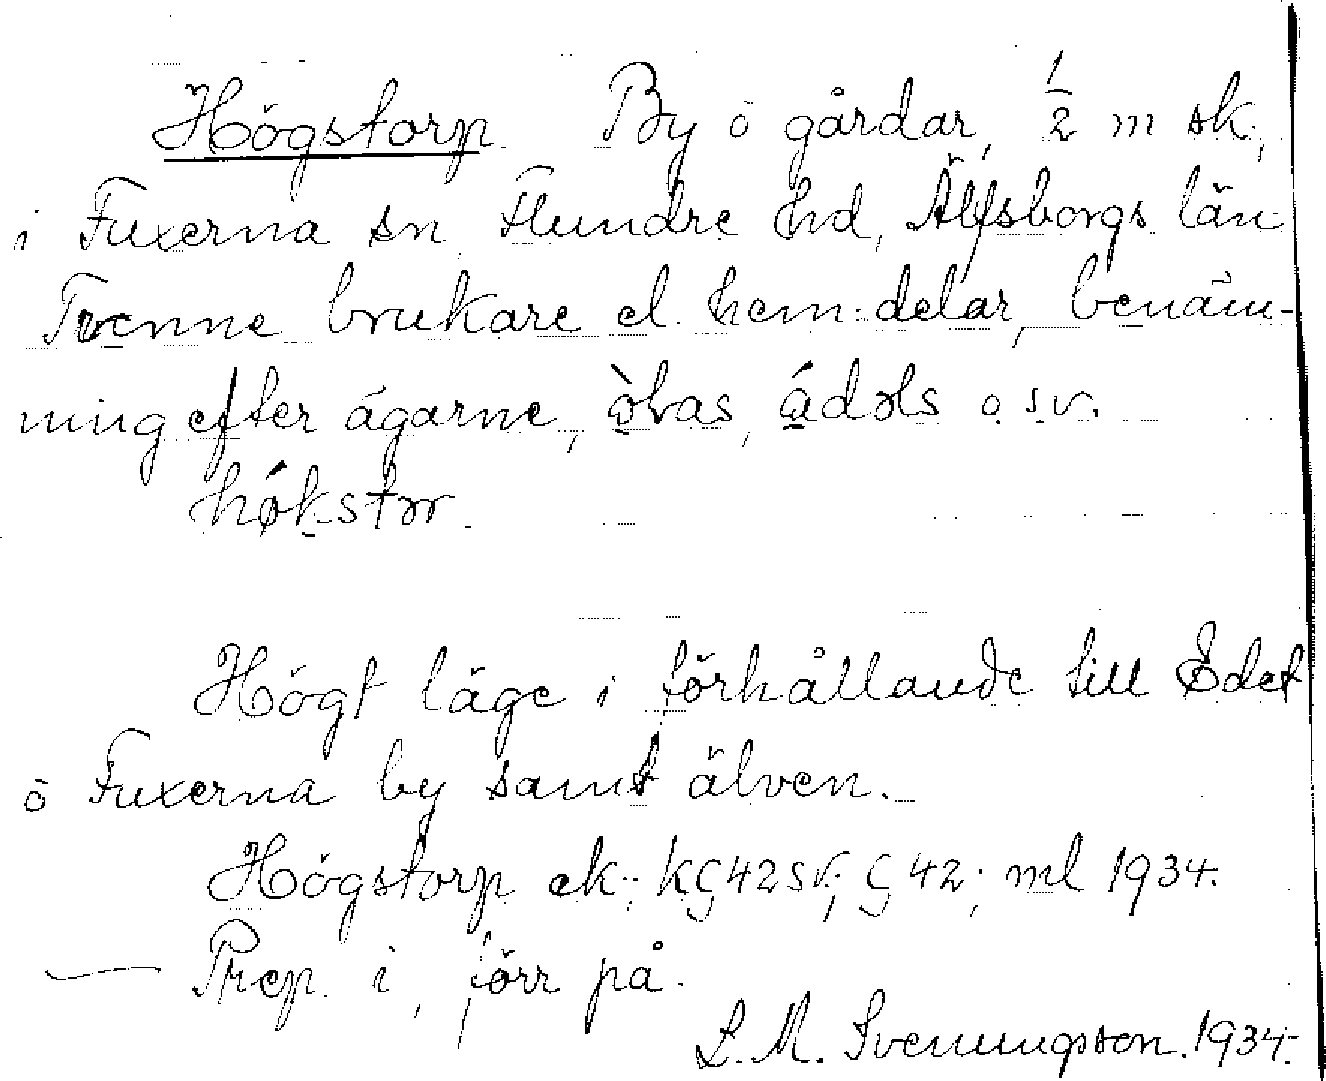 Högstorp. By o gårdar, 1/2 m sk.,
i Fuxerna sn Flundre hd, Älfsborgs län
Tvenne brukare el. hem: delar, benäm-
ning efter ägarne, o.s.v.
Högt läge i förhållande till Edet
o Fuxerna by samt älven.
Högstorp ek.; kG42sv; G42; ml 1934.
— Prep. i, förr på.
L. M. Svenungson. 1934.